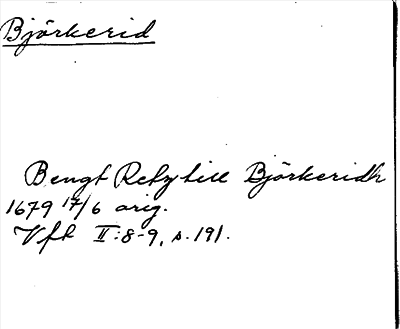 Björkerid
Bengt Retz till Björkeridh
1679 17/6 orig.
Vft II:8-9, s. 191.